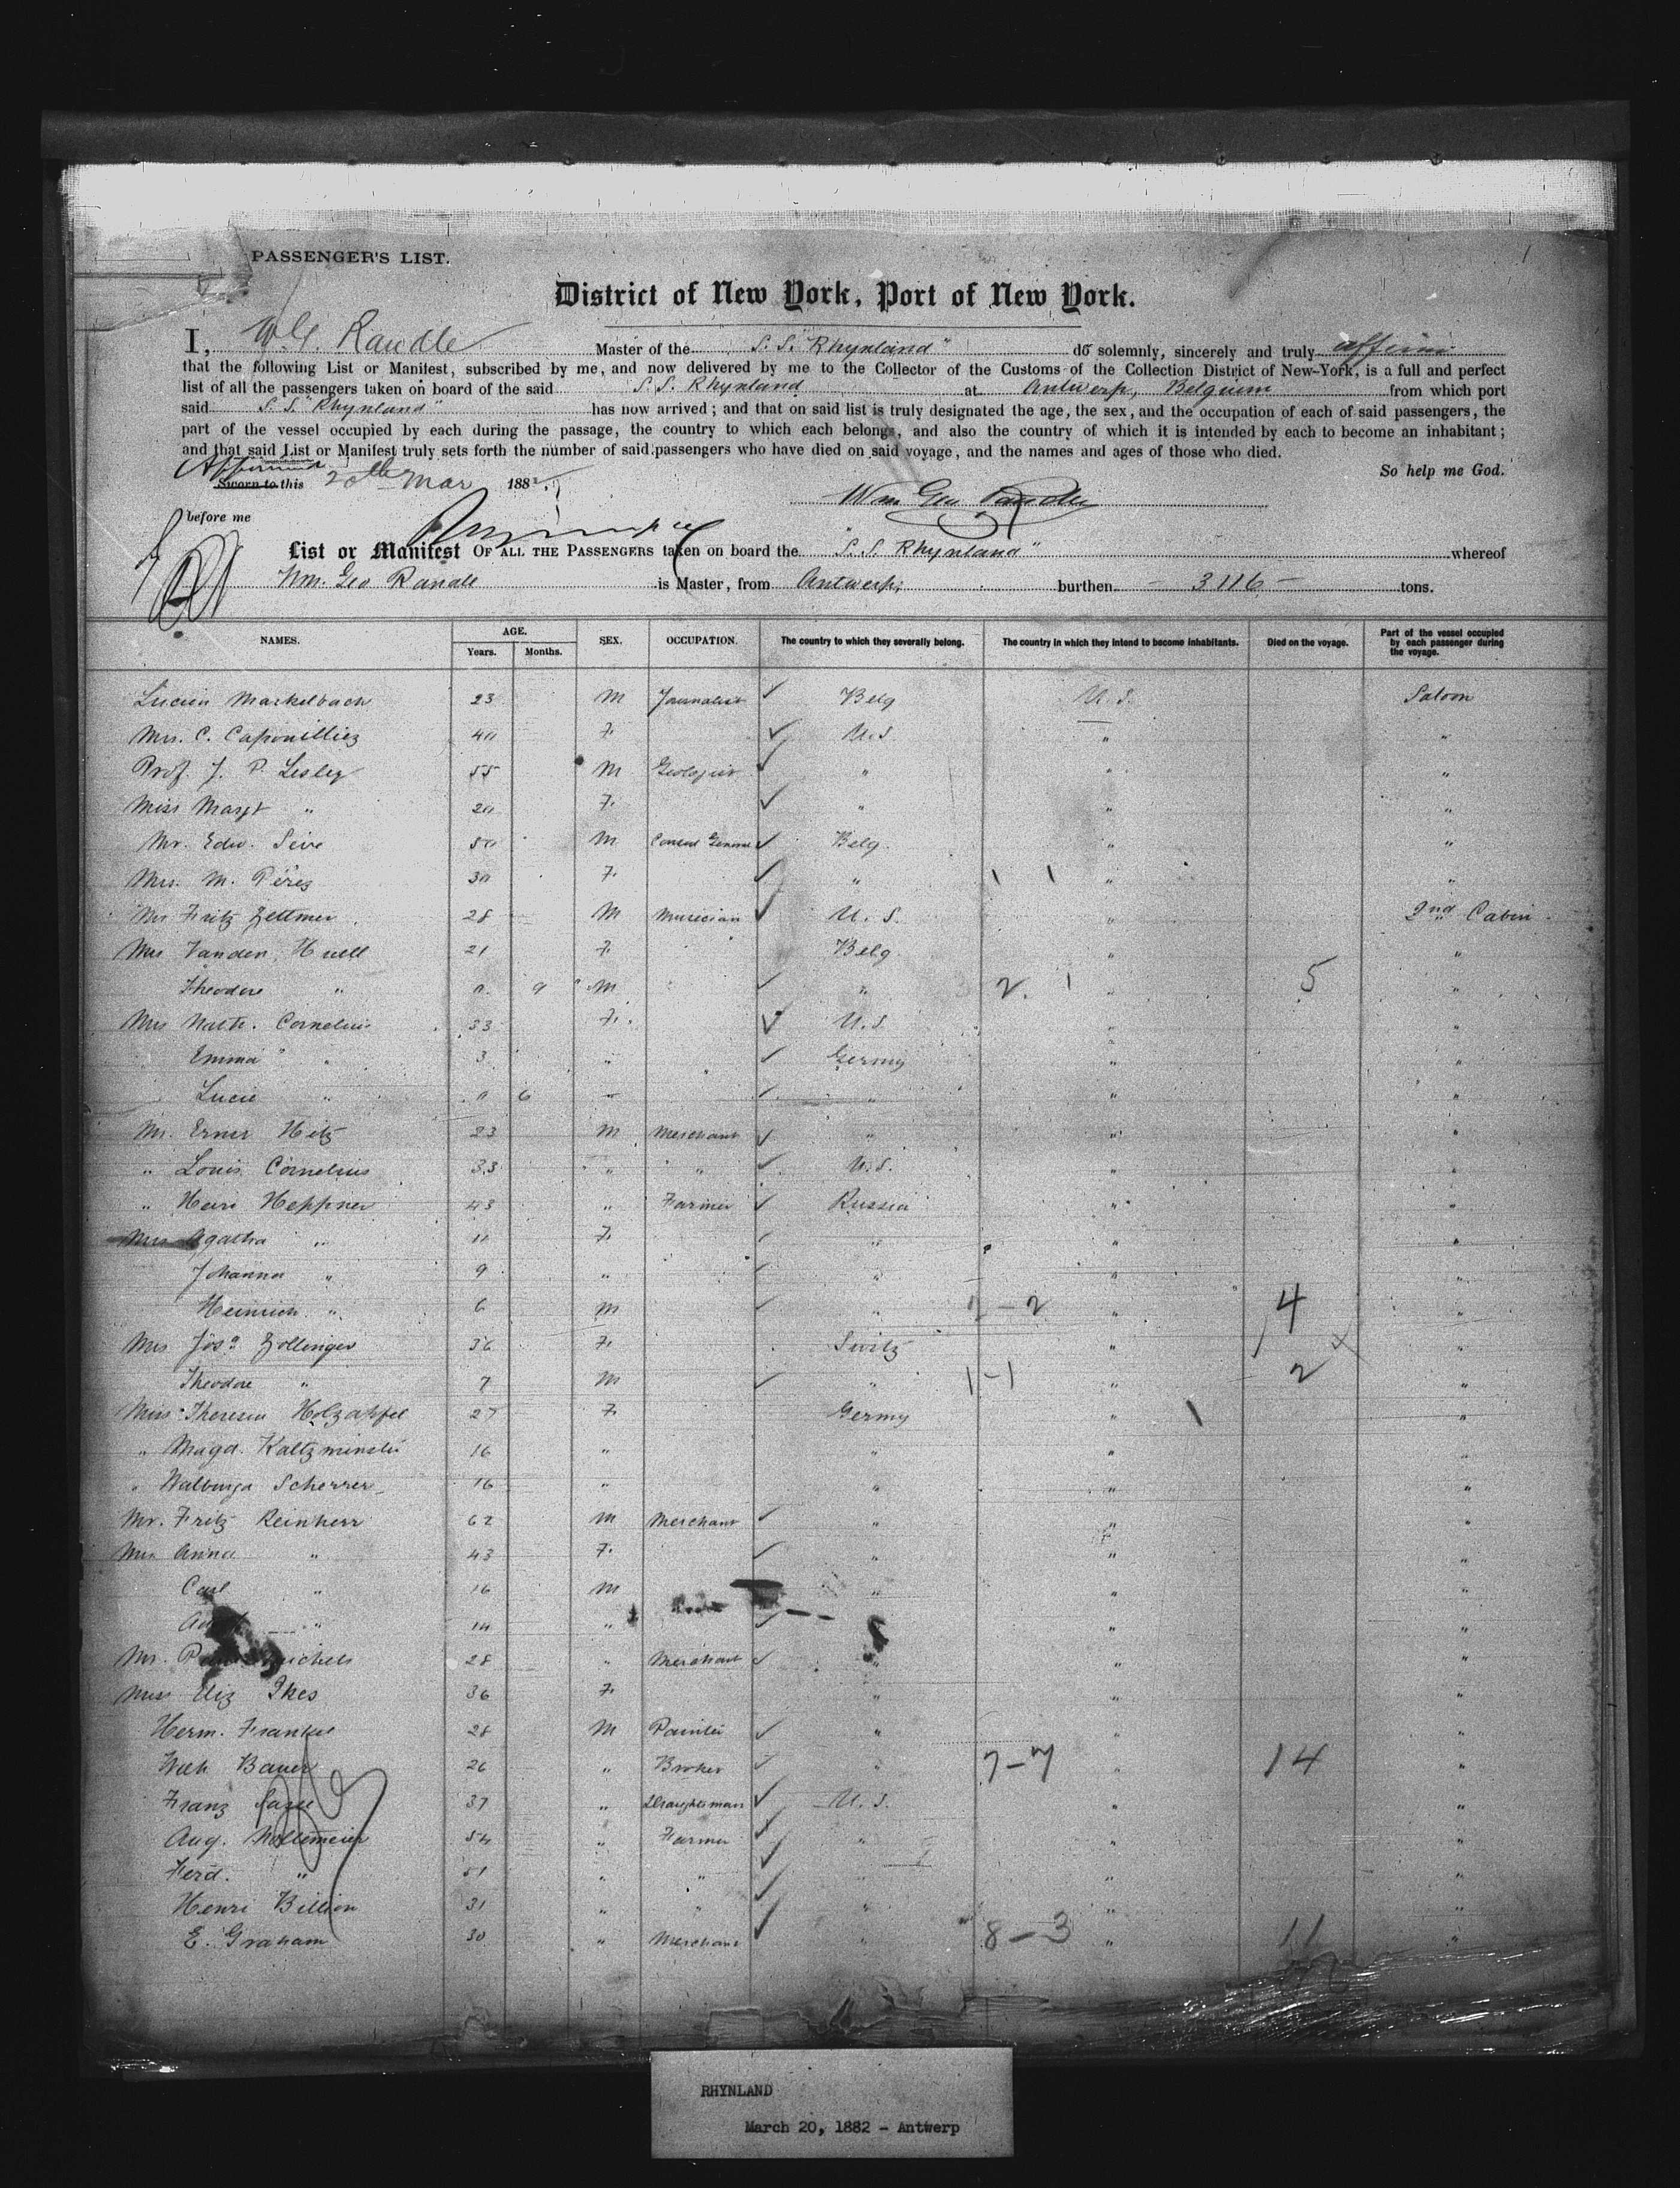 PASSENGER'S LIST.
1
District of New York, Port of New York.
I, W.G. Randle Master of the S.S. "Rhynland" do solemnly, sincerely and truly affirm
that the following List or Manifest, subscribed by me, and now delivered by me to the Collector of the Customs of the Collection District of New-York, is a full and perfect
list of all the passengers taken on board of the said S.S. Rhynland at Antwerp, Belgium from which port
said S.S. "Rhynland" has now arrived; and that on said list is truly designated the age, the sex, and the occupation of each of said passengers, the
part of the vessel occupied by each during the passage, the country to which each belongs, and also the country of which it is intended by each to become an inhabitant;
and that said List or Manifest truly sets forth the number of said passengers who have died on said voyage, and the names and ages of those who died.
So help me God.
Affirmed
Sworn to this 20th Mar 1882.
Wm Geo Randle
before me
List or Manifest OF ALL THE PASSENGERS taken on board the S.S. Rhynland" whereof
Wm. Geo Randle is Master, from Antwerp, burthen - 3116 - tons.
NAMES. AGE. Years. Months. SEX. OCCUPATION. The country to which they severally belong. The country in which they intend to become inhabitants. Died on the voyage. Part of the vessel occupied by each passenger during the voyage.
Lucien Markelbach 23 M Journalist Belg U.S. Saloon
Mrs. C. Capouilliez 40 F. U.S. " "
Prof. J. P. Lesley 55 M Geologist " " "
Miss Margt " 20 F. " " "
Mr. Edw. Seve 50 M Consul General Belg. " "
Mrs. M. Pérez 30 F. " 1 1 " "
Mr Fritz Zettmer 28 M Musician U.S. " 2nd Cabin
Mrs Vanden Huell 21 F. Belg " "
Theodore " 0 9 M " 2. 1 " 5 "
Mrs Nath. Cornelius 33 F. U.S. " "
Emma " 3 " Germy " "
Lucie " 0 6 " " " "
Mr. Erner Hitz 23 M Merchant " " "
" Louis Cornelius 33 " " U.S. " "
" Heinr Heppner 43 " Farmer Russia " "
Mrs Agatha " 11 F. " " "
Johanna " 9 " " " "
Heinrich " 6 M " 2-2 " 4 "
Mrs Josa Zollinger 36 F. Switz " "
Theodore " 7 M " 1-1 " 2 "
Miss Theresia Holzapfel 27 F Germy " "
" Magd. Kaltzminster 16 " " " "
" Walburga Scherrer 16 " " " "
Mr. Fritz Reinherr 62 M Merchant " " "
Mrs Anna " 43 F. " " "
Carl " 16 M " " "
" 14 " " "
Mr. Michels 28 " Merchant " " "
Miss Eliz Ikes 36 F. " " "
Herm. Frankel 28 M Painter " " "
Wilh Bauer 26 " Broker " 7-7 " 14 "
Franz 37 " Draughtsman U.S. " "
Aug. Noltemeier 54 " Farmer " " "
Ferd. " 51 " " " " "
Henri Billion 31 " " " " "
E. Graham 30 " Merchant " 8-3 " 11 "
RHYNLAND
March 20, 1882 - Antwerp